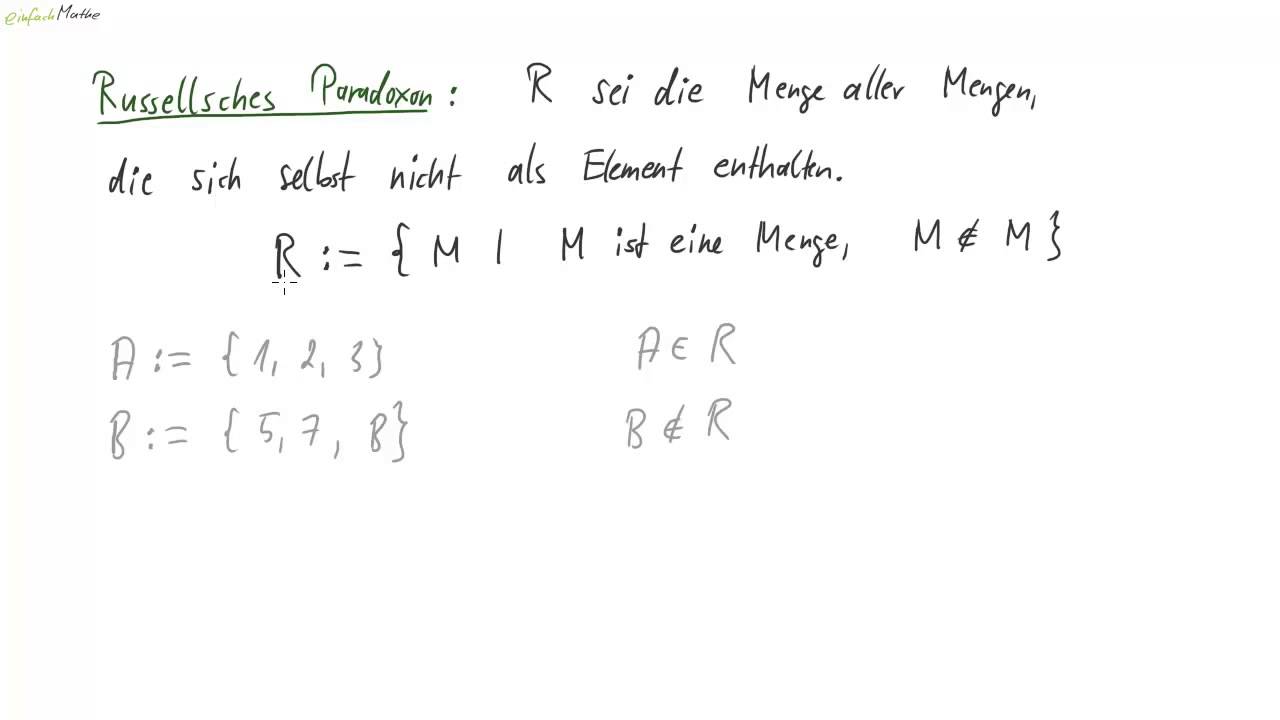 einfachMathe
Russellsches Paradoxon: R sei die Menge aller Mengen,
die sich selbst nicht als Element enthalten.
R := { M | M ist eine Menge, M ∉ M }
A := { 1, 2, 3 } A ∈ R
B := { 5, 7, B } B ∉ R